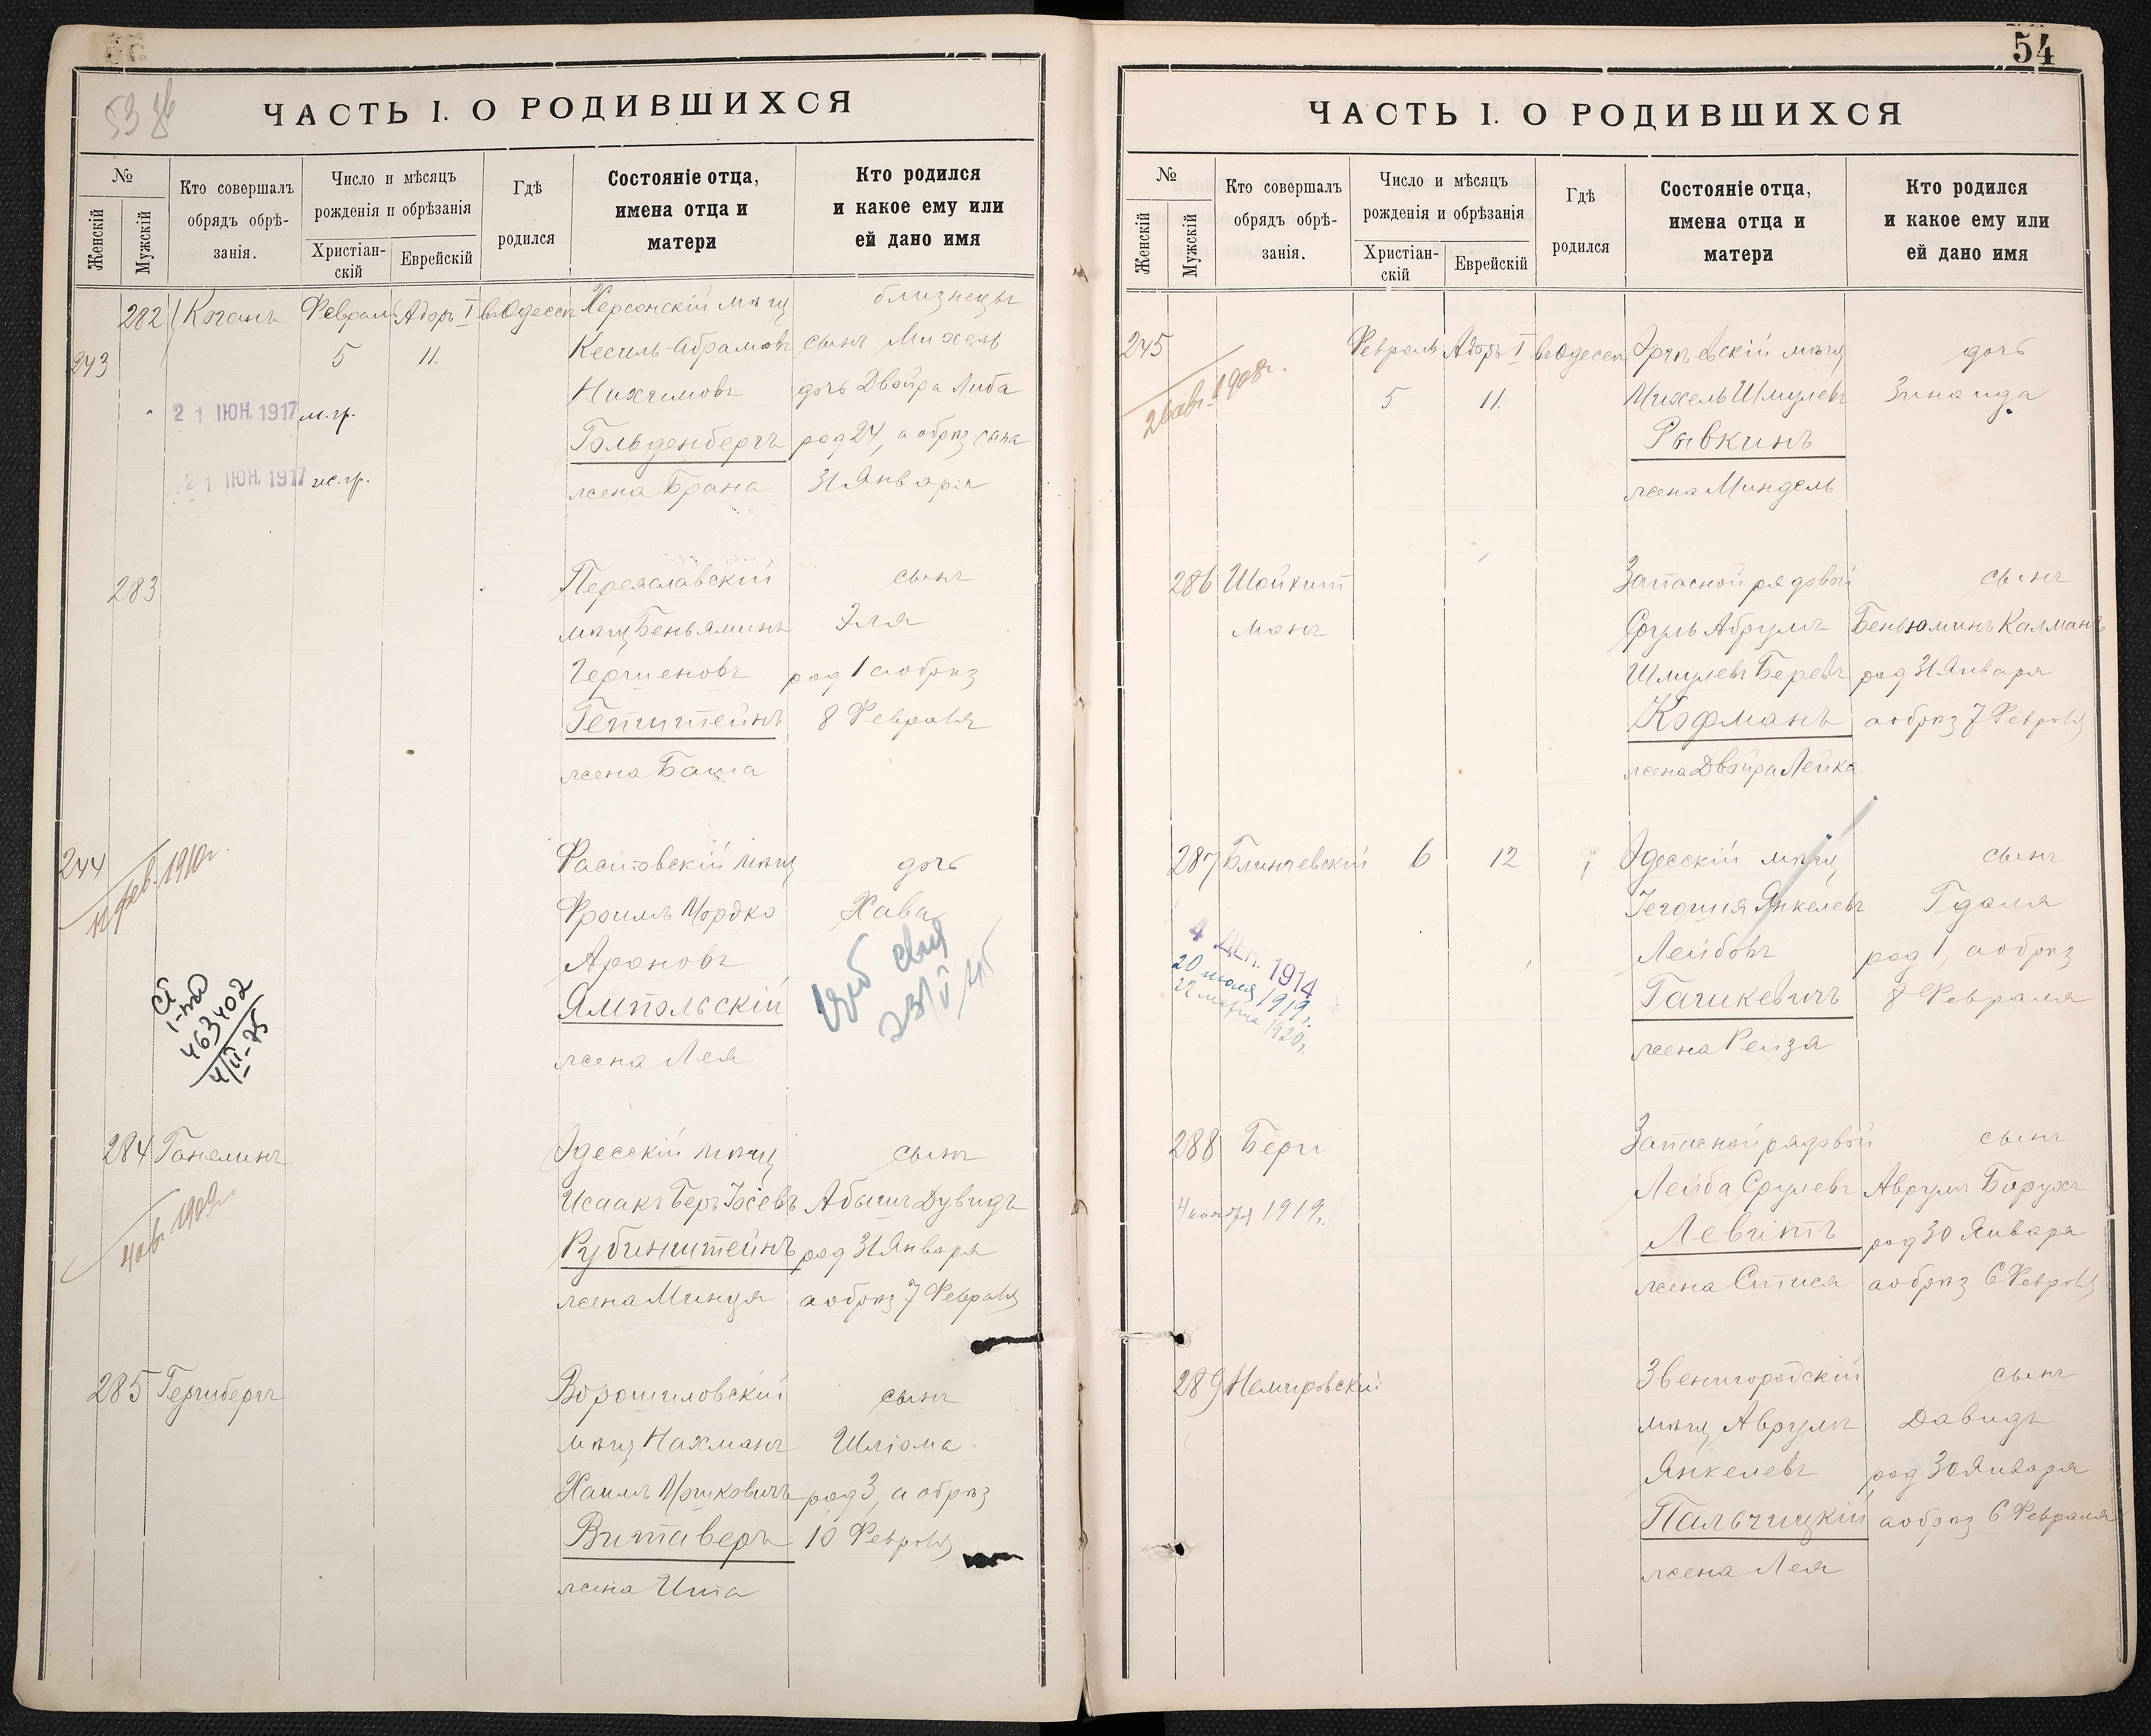 53 об
ЧАСТЬ I. О РОДИВШИХСЯ
№
Женскій
Мужскій
Кто совершалъ
обрядъ обрѣ-
занія.
Число и мѣсяцъ
рожденія и обрѣзанія
Христіан-
скій
Еврейскій
Гдѣ
родился
Состояніе отца,
имена отца и
матери
Кто родился
и какое ему или
ей дано имя
282 Коганъ Февраль Адоръ I въ Одессѣ Херсонскій мѣщ близнецы
243 5 11. Кесиль-Абрамовъ сынъ Михель
Нихимовъ дочь Двойра Либа
21 ІЮН. 1917 м.гр.
Гольденбергъ род 24, а обрѣз сына
21 ІЮН. 1917 ж.гр.
жена Брана 31 Января
283 Переяславскій сынъ
мѣщ Беньяминъ Эля
Гершеновъ род 1 а обрѣз
8 Февраля
жена Бася
244 Фастовскій мѣщ дочь
12 фев. 1910г.
Фроимъ Мордко Хава
Ароновъ
Ямпольскій
жена Лея
463402
4/II-75
23/V
284 Ганелинъ Одесскій мѣщ сынъ
Исаакъ Беръ Іосевъ Абышъ Дувидъ
4 авг. 1909г.
Рубинштейнъ род 31 Января
жена Минця а обрѣз 7 Февраля
285 Гершбергъ Ворошиловскій сынъ
мѣщ Нахманъ Шліома
Хаимъ Ицковичъ род 3, а обрѣз
Витаверъ 10 Февраля
жена Ита
54
ЧАСТЬ I. О РОДИВШИХСЯ
№
Женскій
Мужскій
Кто совершалъ
обрядъ обрѣ-
занія.
Число и мѣсяцъ
рожденія и обрѣзанія
Христіан-
скій
Еврейскій
Гдѣ
родился
Состояніе отца,
имена отца и
матери
Кто родился
и какое ему или
ей дано имя
245 Февраль Адоръ I въ Одессѣ мѣщ дочь
26 авг. 1908г.
5 11. Михель Шмулевъ Зинаида
Рывкинъ
жена Миндель
286 Шойхит Запасной рядовой сынъ
манъ Сруль Абрумъ Беньюминъ Калманъ
Шмулевъ Беревъ род 31 Января
Кофманъ а обрѣз 7 Февраля
жена Двойра Лейка
287 Блинчевскій 6 12 Одесскій мѣщ сынъ
Іегошія Янкелевъ Гдаля
4 ДЕК. 1914
20 июля 1919г.
22 марта 1920г.
Лейбовъ род 1, а обрѣз
Гашкевичъ 8 Февраля
жена Рейза
288 Бери Запасной рядовой сынъ
Лейба Срулевъ Аврумъ Борухъ
4 ноября 1919г.
Левитъ род 30 Января
жена а обрѣз 6 Февраля
289 Немировскій Звенигородскій сынъ
мѣщ Аврумъ Давидъ
Янкелевъ род 30 Января
Пальчицкій а обрѣз 6 Февраля
жена Лея